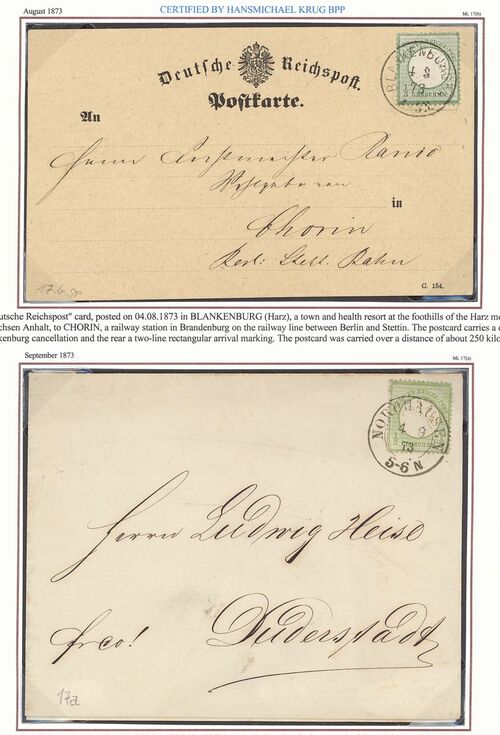 August 1873
CERTIFIED BY HANSMICHAEL KRUG BPP
Mi. 17(b)
Deutsche Reichspost.
Postkarte.
BLANKENBURG
4 8
73
1/3
GROSCHEN
An
Herrn Ramio
Wohlgeboren
in
Chorin
Berl: Stett. Bahn
17b
C. 154.
utsche Reichspost" card, posted on 04.08.1873 in BLANKENBURG (Harz), a town and health resort at the foothills of the Harz mo
chsen Anhalt, to CHORIN, a railway station in Brandenburg on the railway line between Berlin and Stettin. The postcard carries a c
kenburg cancellation and the rear a two-line rectangular arrival marking. The postcard was carried over a distance of about 250 kilo
September 1873
Mi. 17(a)
NORDHAUSEN
4 9
73
5-6 N
Herrn Ludwig Heise
frco! Duderstadt
17a